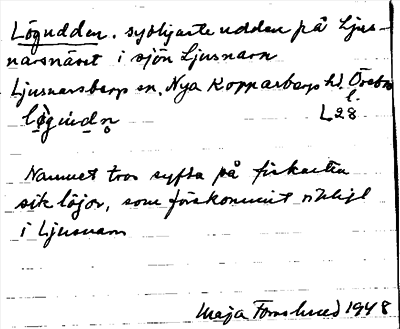 Lögudden. sydligaste udden på Ljus-
narsnäset i sjön Ljusnarn
Ljusnarsbergs sn. Nya Kopparbergs hd. Örebro
l.
lögúdn L28
Namnet tros syfta på fiskarten
sik löjor, som förekommit rikligt
i Ljusnarn
Maja Forslund 1948